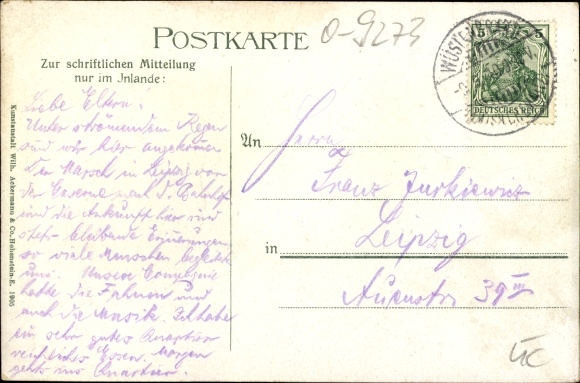 POSTKARTE
O-9273
Zur schriftlichen Mitteilung
nur im Jnlande:
Liebe Eltern!
Unter strömendem Regen
sind wir hier angekommen
Der Marsch in Leipzig von
der Caserne nach d. Bahnhof
und die Ankunft hier sind
stets bleibende Erinnerungen
so viele Menschen begleiteten
uns. Unsere Compagnie
hatte die Fahnen und
auch die Musik. Ich habe
ein sehr gutes Quartier
reichliches Essen. Morgen
gehts ins Quartier.
Kunstanstalt Wilh. Ackermann & Co. Hohenstein-E. 1905
WÜSTENBRAND
5 5
DEUTSCHES REICH
An Herrn
Franz Jurkiewicz
in Leipzig
Augustr 39 III